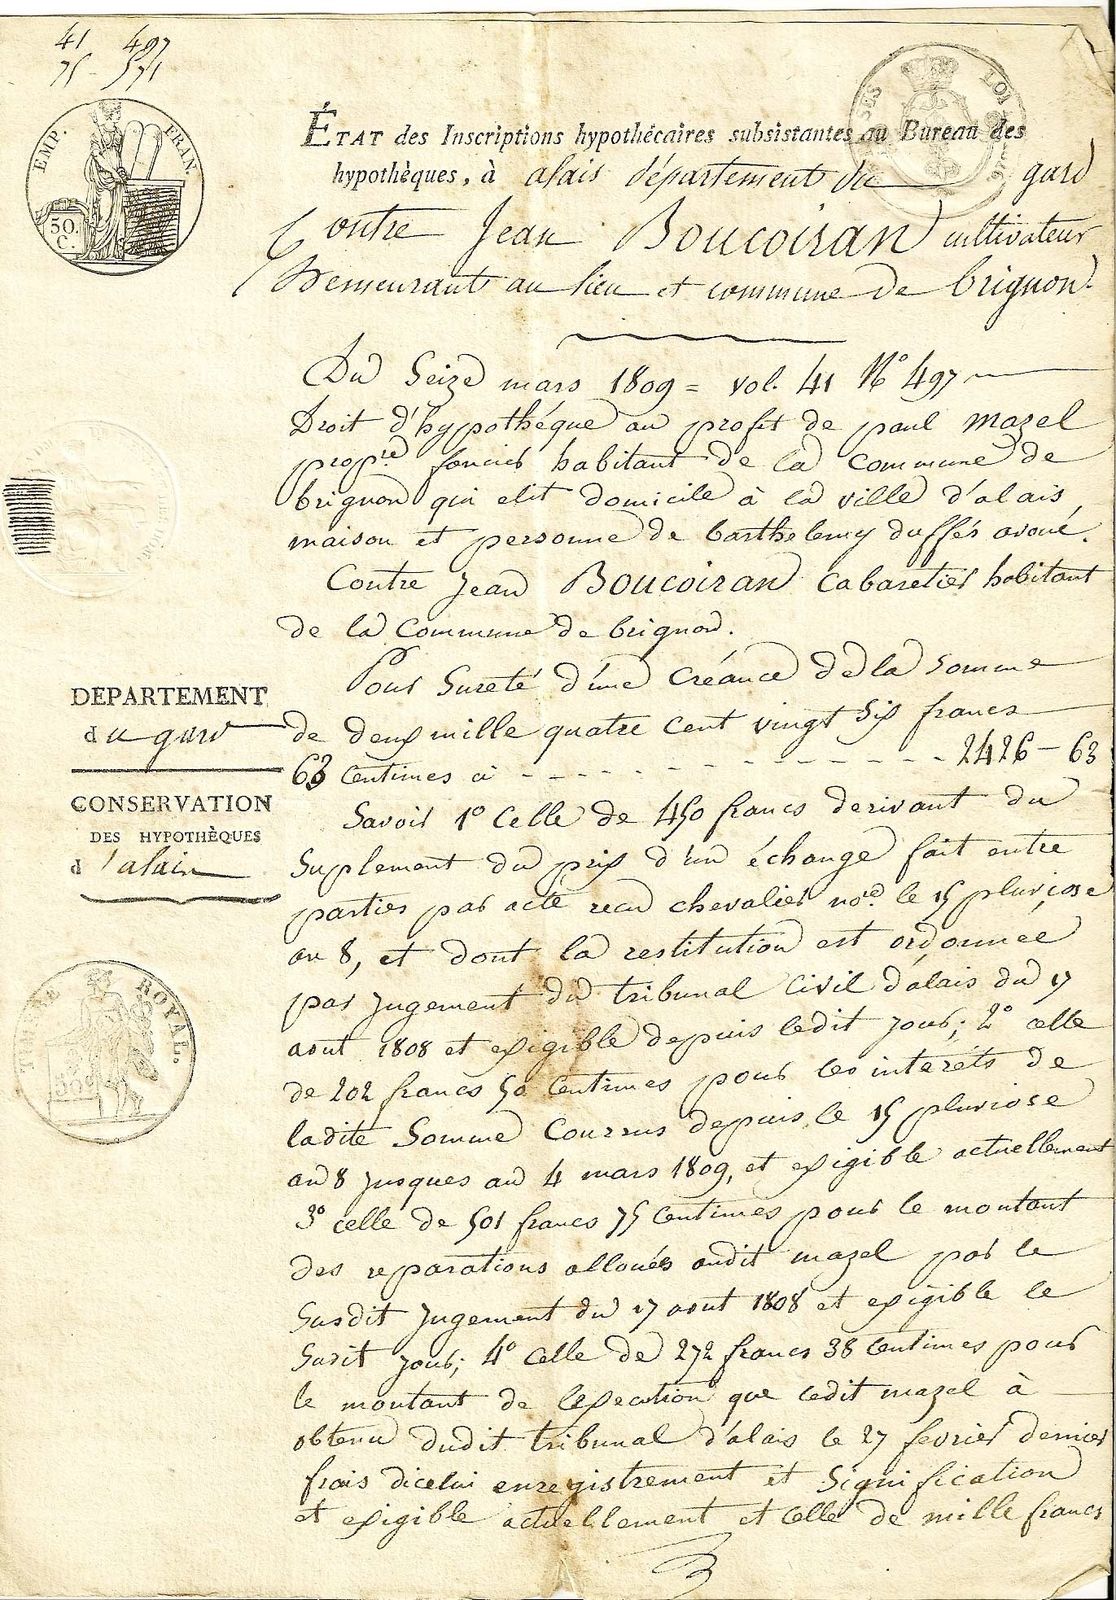 41 497
75 - 571
EMP. FRAN.
50. C.
ÉTAT des Inscriptions hypothécaires subsistantes au Bureau des
hypothèques, à alais département du gard
Contre Jean Boucoiran cultivateur
Demeurant au lieu et commune de brignon.
Du Seize mars 1809 = vol. 41 N° 497
Droit d'hypothéque au profit de paul mazel
propre foncier habitant de la commune de
brignon qui elit domicile à la ville d'alais
maison et personne de barthelemy duffés avoué.
Contre Jean Boucoiran Cabaretier habitant
de la Commune de brignon.
Pour Sureté d'une Créance de la Somme
de deux mille quatre cent vingt Six francs
63 Centimes ci - - - - - - - - - - - - - - 2426 - 63
Savoir 1° Celle de 450 francs derivant du
Suplement du prix d'un échange fait entre
parties par acte recu chevalier nore. le 15 pluviose
an 8, et dont la restitution est ordonnée
par Jugement du tribunal Civil d'alais du 17
aout 1808 et exigible depuis ledit jour; 2° celle
de 202 francs 50 Centimes pour les interéts de
ladite Somme Courrus depuis le 15 pluviose
an 8 Jusques au 4 mars 1809, et exigible actuellement
3° celle de 501 francs 75 Centimes pour le montant
des reparations allouées audit mazel par le
Susdit Jugement du 17 aout 1808 et exigible le
Sudit jour; 4° celle de 272 francs 38 Centimes pour
le montant de l'execution que ledit mazel à
obtenu dudit tribunal d'alais le 27 fevrier dernier
frais dicelui enregistrement et Signification
et exigible actuellement et Celle de mille francs
DÉPARTEMENT
du gard
CONSERVATION
DES HYPOTHÈQUES
d'alais
ROYAL.